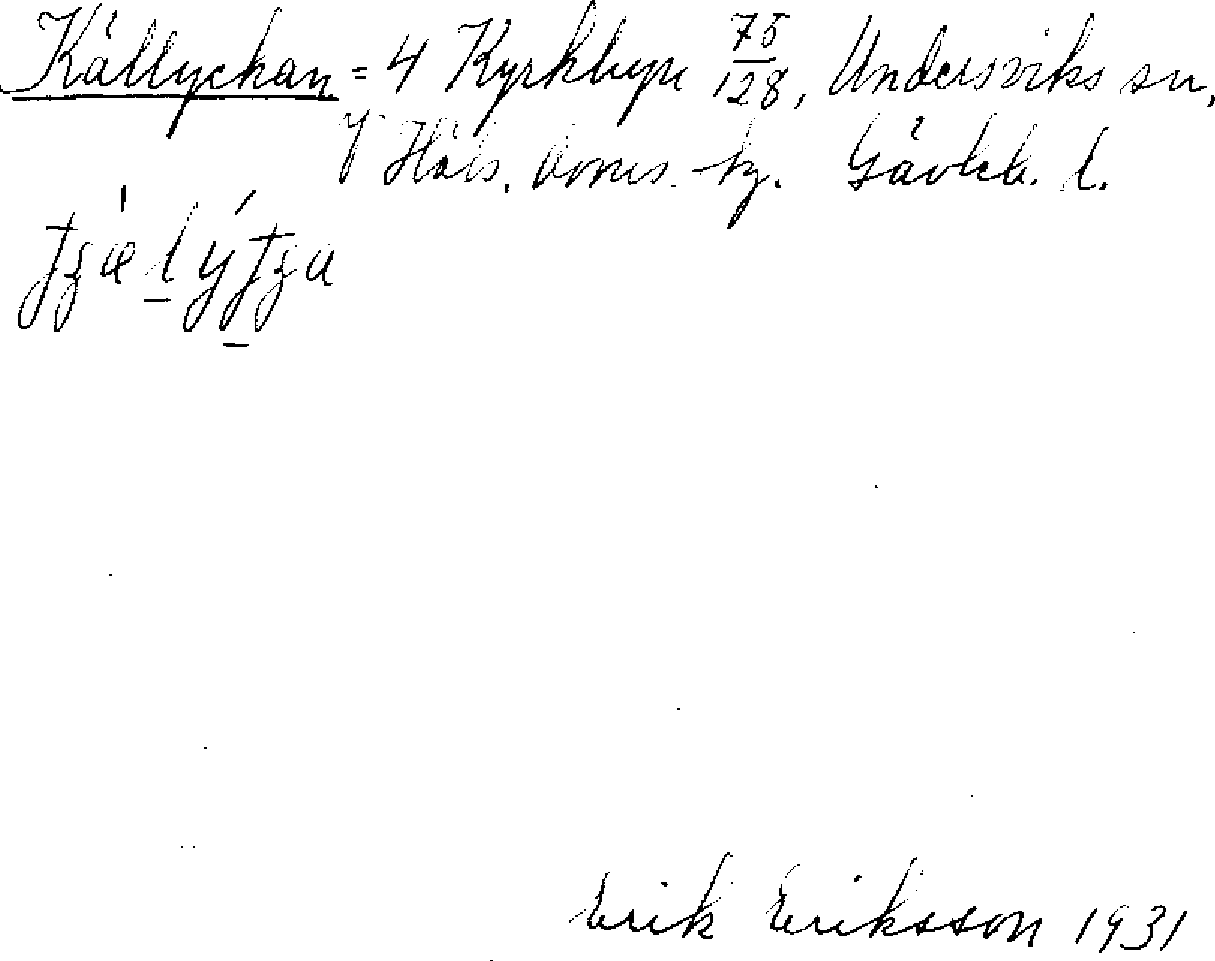 Källyckan = 4 Kyrkbyn 75/128, Undersviks sn,
V Häls. doms. hg. Gävleb. l.
Erik Eriksson 1931